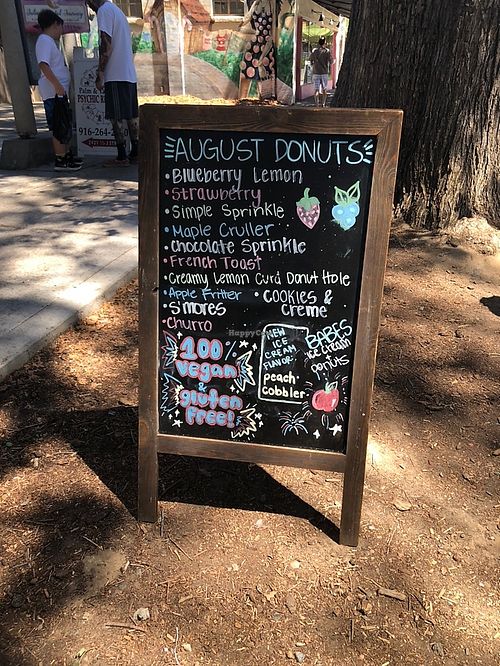 AUGUST DONUTS
• Blueberry Lemon
• Strawberry
• Simple Sprinkle
• Maple Cruller
• Chocolate Sprinkle
• French Toast
• Creamy Lemon Curd Donut Hole
• Apple Fritter • COOKIES &
CREME
• S'mores
• Churro
100%
vegan
&
gluten
free!
NEW
ICE
CREAM
FLAVOR
peach
cobbler
BABES
ice cream
donuts
PSYCHIC
916-264-2